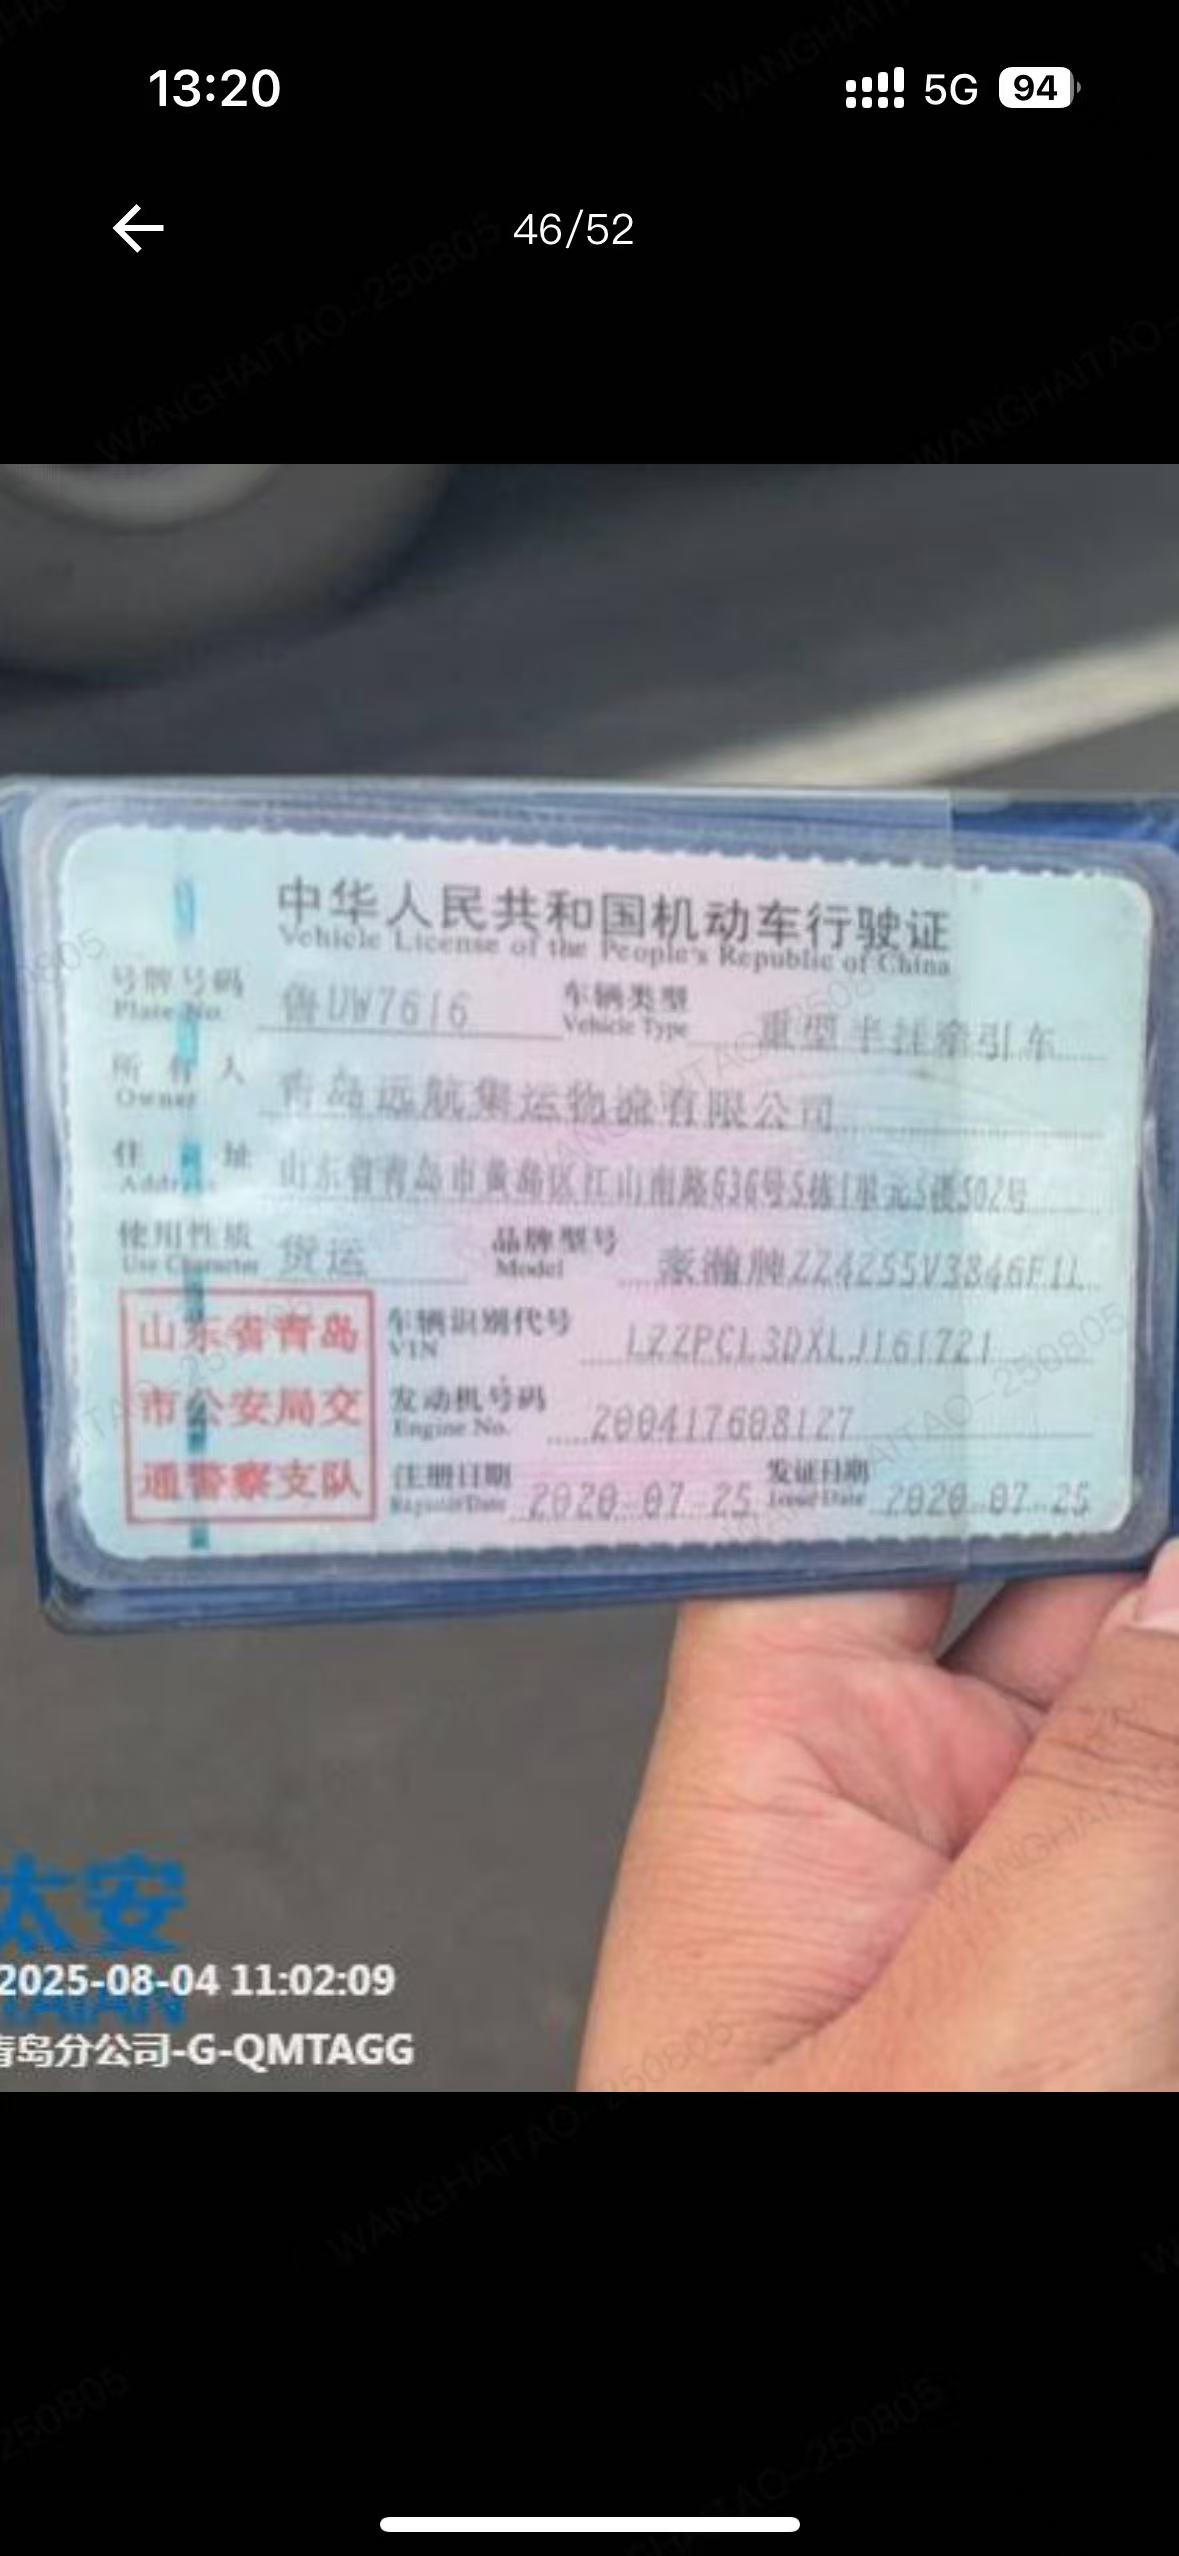 13:20
5G 94
46/52
中华人民共和国机动车行驶证
Vehicle License of the People's Republic of China
号牌号码 鲁UW7616 车辆类型 重型半挂牵引车
Plate No. Vehicle Type
所有人 青岛远航集运物流有限公司
Owner
住址 山东省青岛市黄岛区江山南路636号5栋1单元5楼502号
Address
使用性质 货运 品牌型号 豪瀚牌ZZ4255V3846F1L
Use Character Model
山东省青岛
市公安局交
通警察支队
车辆识别代号 LZZPCL3DXLJ161721
VIN
发动机号码 200417608127
Engine No.
注册日期 2020-07-25 发证日期 2020-07-25
Register Date Issue Date
太安
TAIAN
2025-08-04 11:02:09
青岛分公司-G-QMTAGG
WANGHAITAO-250805